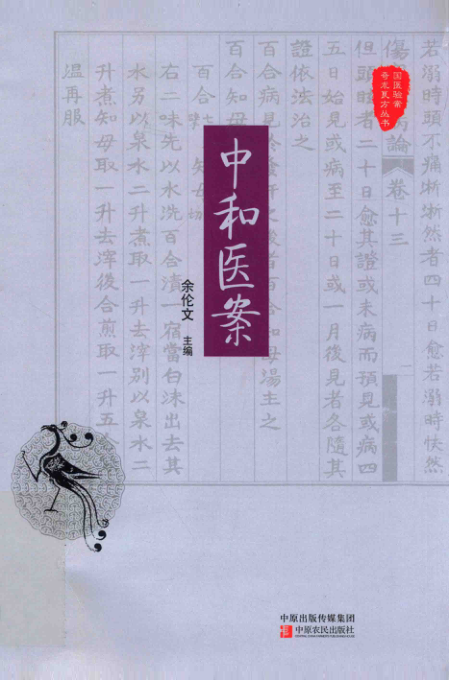 国医验案
奇术良方丛书
中和医案
余伦文 主编
若溺時頭不痛淅淅然者四十日愈若溺時怏然
傷 病論 卷十三 一
但頭眩者二十日愈其證或未病而預見或病四
五日始見或病至二十日或一月後見者各隨其
證依法治之
百合病見於發汗之後者百合知母湯主之
百合知母
百合
右二味先以水洗百合漬一宿當白沫出去其
水另以泉水二升煮取一升去滓別以泉水二
升煮知母取一升去滓後合煎取一升五合
溫再服
中原出版传媒集团
中原农民出版社